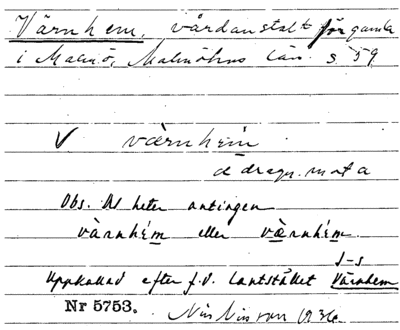 Värnhem, vårdanstalt för gamla
i Malmö, Malmöhus län. s. 59
V värnhém
d:o dragn. mot a
Obs. Det heter antingen
värnhém eller værnhém.
s-s
Uppkallad efter f.d. lantstället Värnhem
Nr 5753. Nils Nilsson 1936.